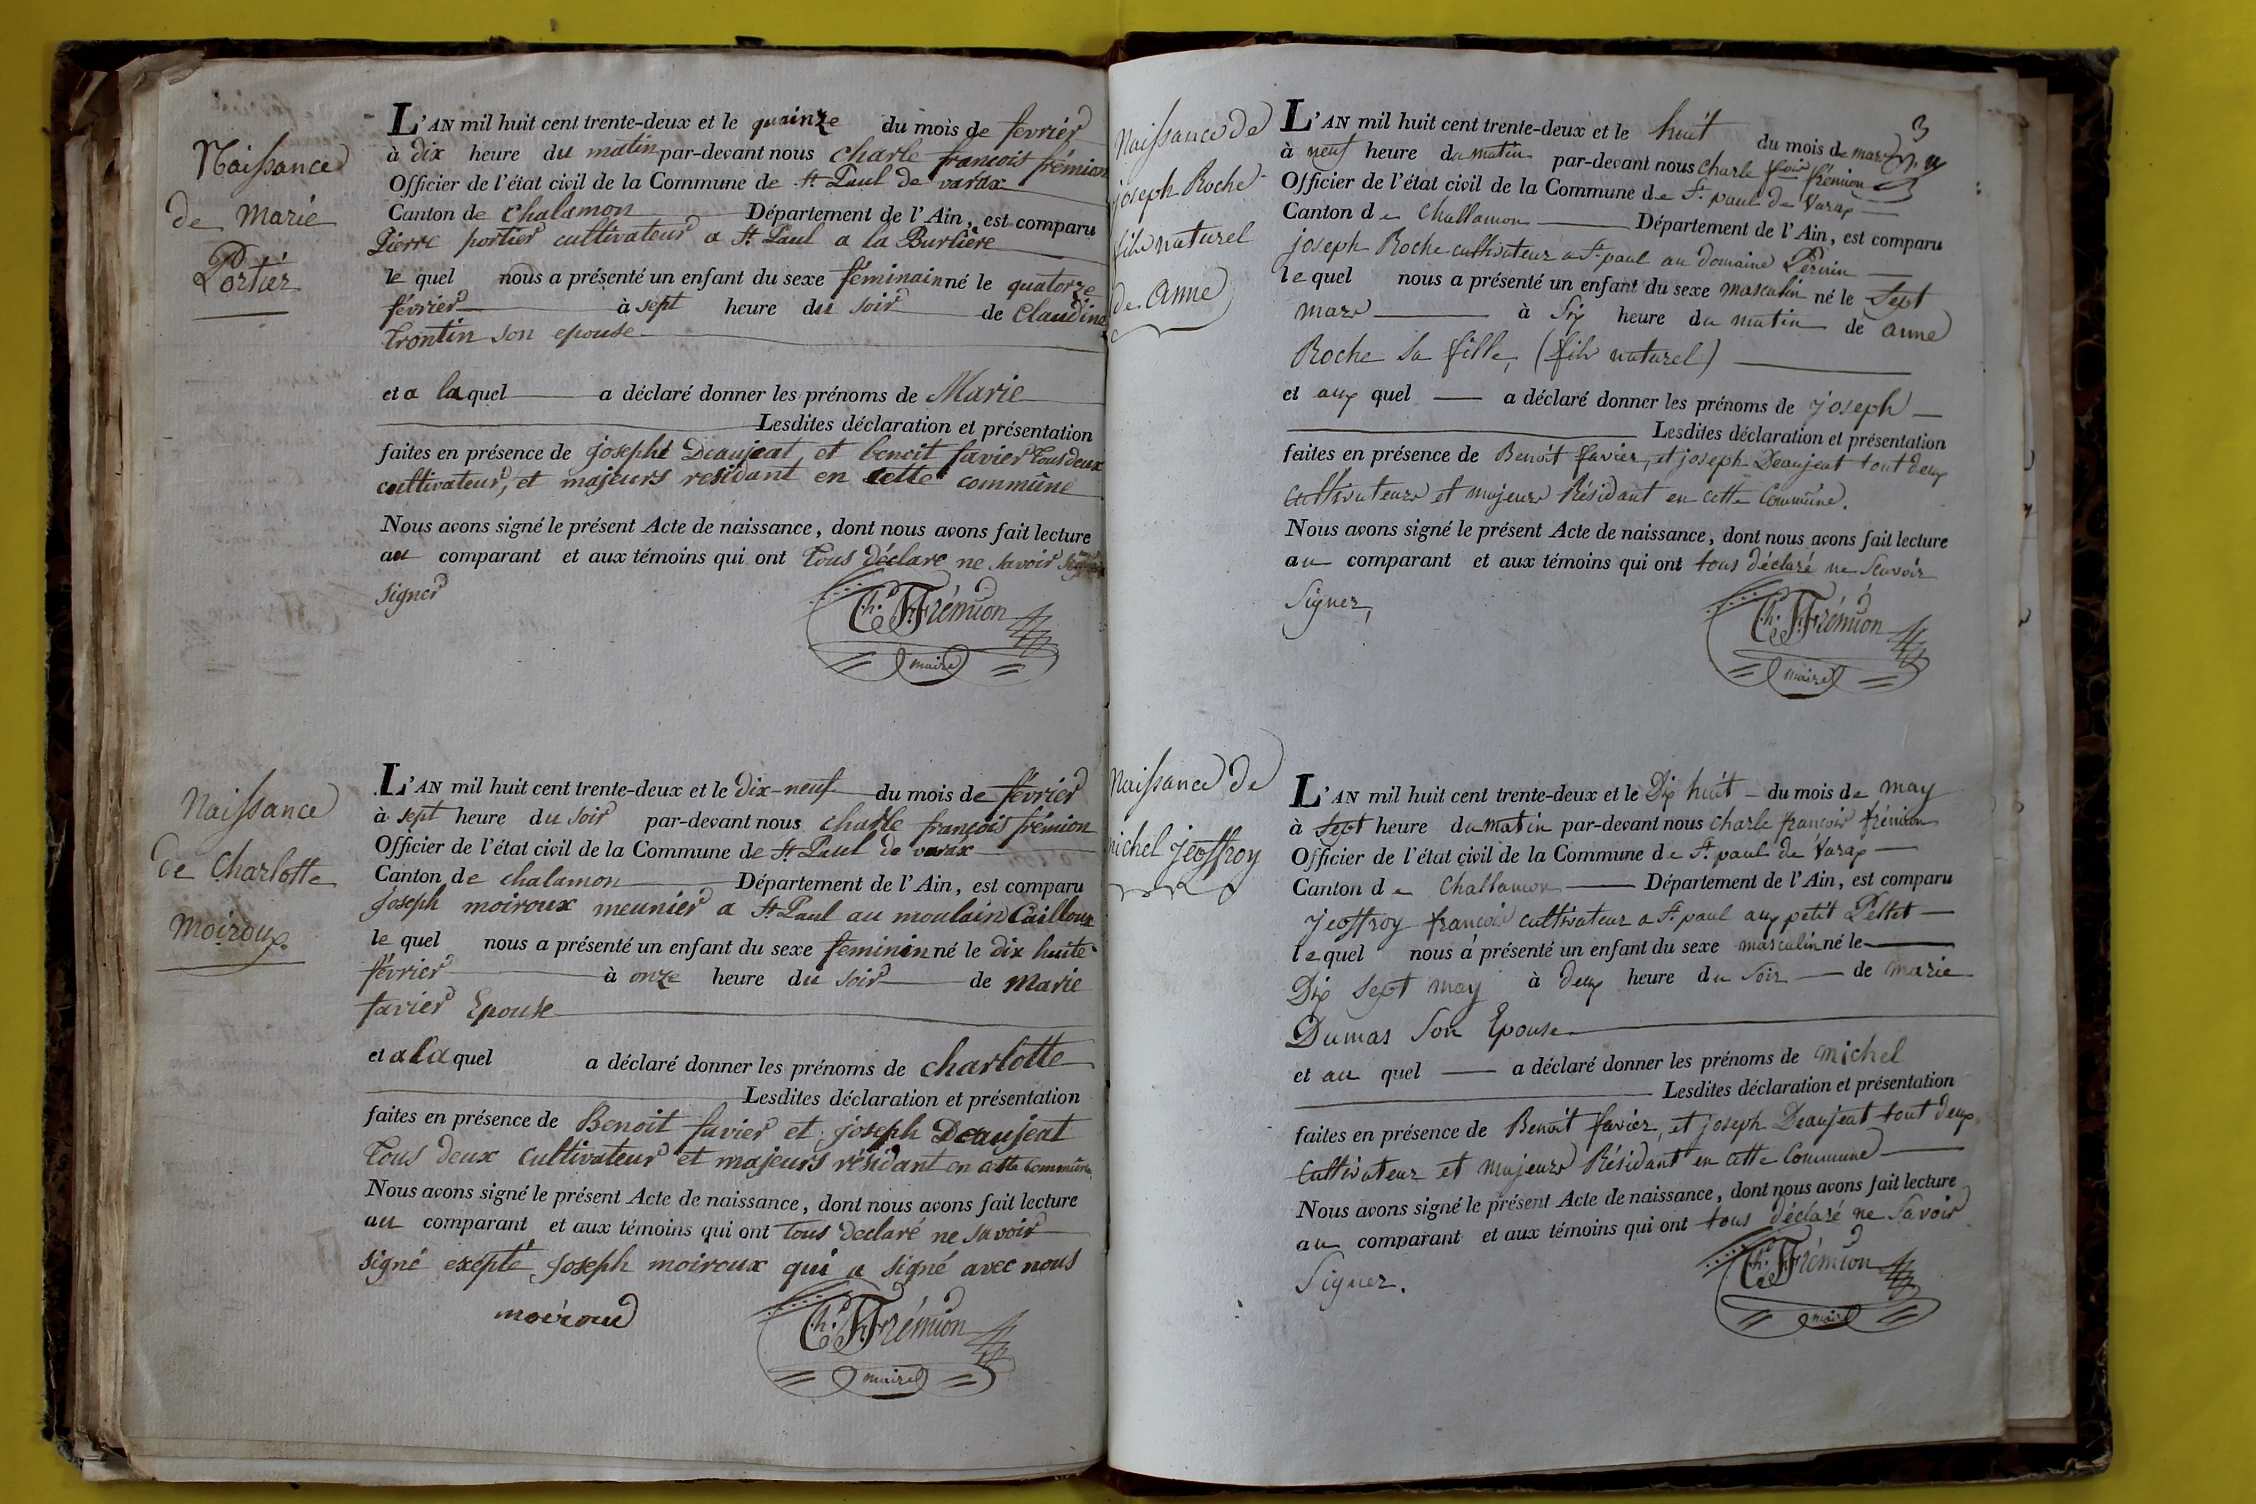 Naissance
de Marie
Portier
L'AN mil huit cent trente-deux et le quainze du mois de fevrier
à dix heure du matin par-devant nous charle francois frémion
Officier de l'état civil de la Commune de St Paul de varax
Canton de Chalamon Département de l'Ain, est comparu
Pierre portier cultivateur a St Paul a la Burlière
le quel nous a présenté un enfant du sexe féminain né le quatorze
février à sept heure du soir de Claudine
trontin son epouse
et a la quel a déclaré donner les prénoms de Marie
Lesdites déclaration et présentation
faites en présence de Josephe Deaujeat, et benoit favier tous deux
cultivateur, et majeurs residant en cette commune
Nous avons signé le présent Acte de naissance, dont nous avons fait lecture
au comparant et aux témoins qui ont tous déclare ne savoir
signer
Ch. F. Frémion
maire
Naissance
de Charlotte
Moiroux
L'AN mil huit cent trente-deux et le dix-neuf du mois de février
à sept heure du soir par-devant nous charle françois frémion
Officier de l'état civil de la Commune de St Paul de varax
Canton de chalamon Département de l'Ain, est comparu
Joseph moiroux meunier a St Paul au moulain Cailloux
le quel nous a présenté un enfant du sexe feminin né le dix huite
février à onze heure du soir de Marie
favier Epouse
et a la quel a déclaré donner les prénoms de charlotte
Lesdites déclaration et présentation
faites en présence de Benoit favier et joseph Deaujeat
tous deux cultivateur et majeurs résidant en cette commune
Nous avons signé le présent Acte de naissance, dont nous avons fait lecture
au comparant et aux témoins qui ont tous declaré ne savoir
signé exepté Joseph moiroux qui a signé avec nous
moiroud
Ch. F. Frémion
maire
3
Naissance de
joseph Roche
fils naturel
de Anne
L'AN mil huit cent trente-deux et le huit du mois de mars
à neuf heure du matin par-devant nous Charle frois frémion
Officier de l'état civil de la Commune de St. paul de Varax
Canton de Challamon Département de l'Ain, est comparu
joseph Roche cultivateur a St paul au domaine Perrin
le quel nous a présenté un enfant du sexe masculin né le Sept
mars à Six heure du matin de Anne
Roche sa fille, (fils naturel)
et aux quel a déclaré donner les prénoms de joseph
Lesdites déclaration et présentation
faites en présence de Benoit favier, et joseph Deaujeat tout deux
cultivateurs et majeurs Résidant en cette Commune.
Nous avons signé le présent Acte de naissance, dont nous avons fait lecture
au comparant et aux témoins qui ont tous déclaré ne Scavoir
Signer,
Ch. F. Frémion
maire
Naissance de
michel jeoffroy
L'AN mil huit cent trente-deux et le Dix huit du mois de may
à Sept heure du matin par-devant nous Charle francois frémion
Officier de l'état civil de la Commune de St. paul de Varax
Canton de Challamon Département de l'Ain, est comparu
jeoffroy francois cultivateur a St. paul aux petit Pellet
le quel nous a présenté un enfant du sexe masculin né le
Dix Sept may à deux heure du Soir de Marie
Dumas Son Epouse
et au quel a déclaré donner les prénoms de michel
Lesdites déclaration et présentation
faites en présence de Benoit favier, et joseph Deaujeat tout deux
cultivateur et majeurs Résidant en cette Commune
Nous avons signé le présent Acte de naissance, dont nous avons fait lecture
au comparant et aux témoins qui ont tous déclaré ne Savoir
Signer.
Ch. F. Frémion
maire